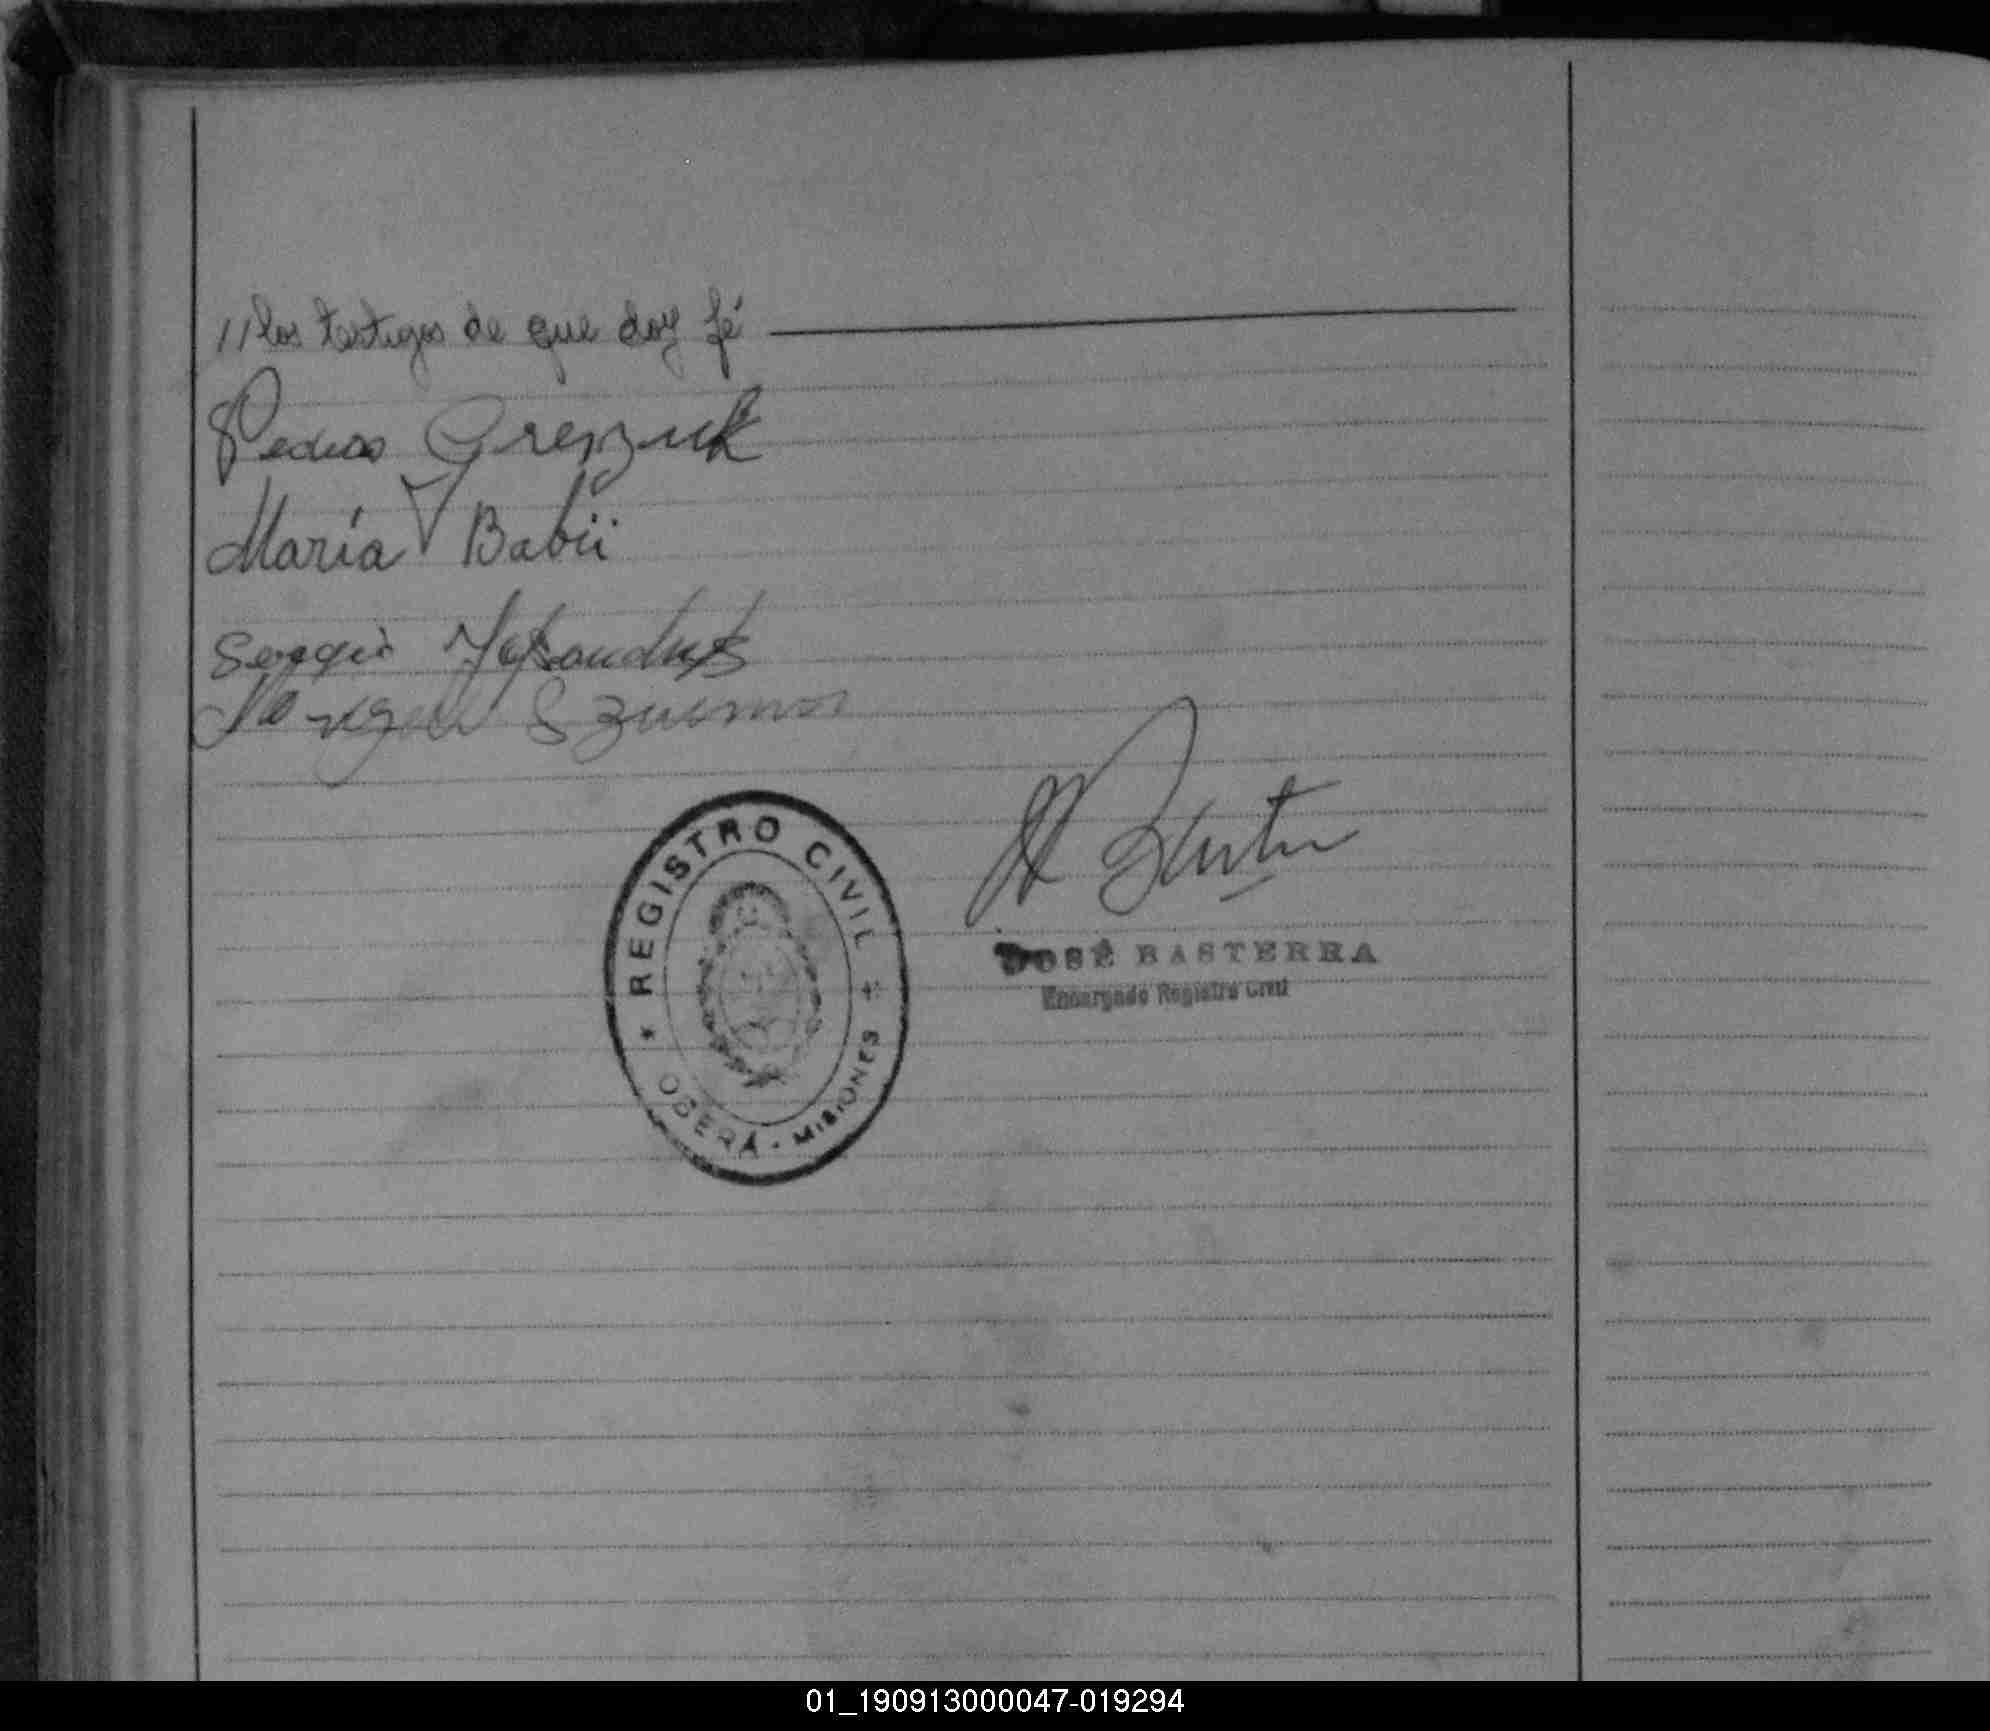 //los testigos de que doy fé
Pedro
María Babii
Sergio
REGISTRO CIVIL
OBERÁ - MISIONES
JOSÉ BASTERRA
Encargado Registro Civil
01_190913000047-019294